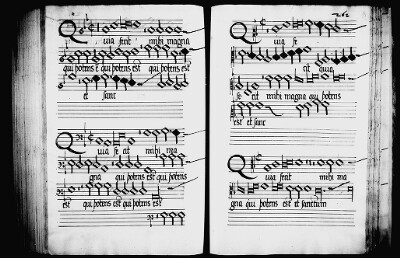 Quia fecit mihi magna
qui potens e qui potens est qui potens est
et sanct
Quia fe cit mihi ma
gna qui potens est qui potens
est qui potens est qui potens est
Quia fe
cit quia
fe cit mihi magna qui potens
est et sanct
Quia fecit mihi ma
gna qui potens est et sanctum